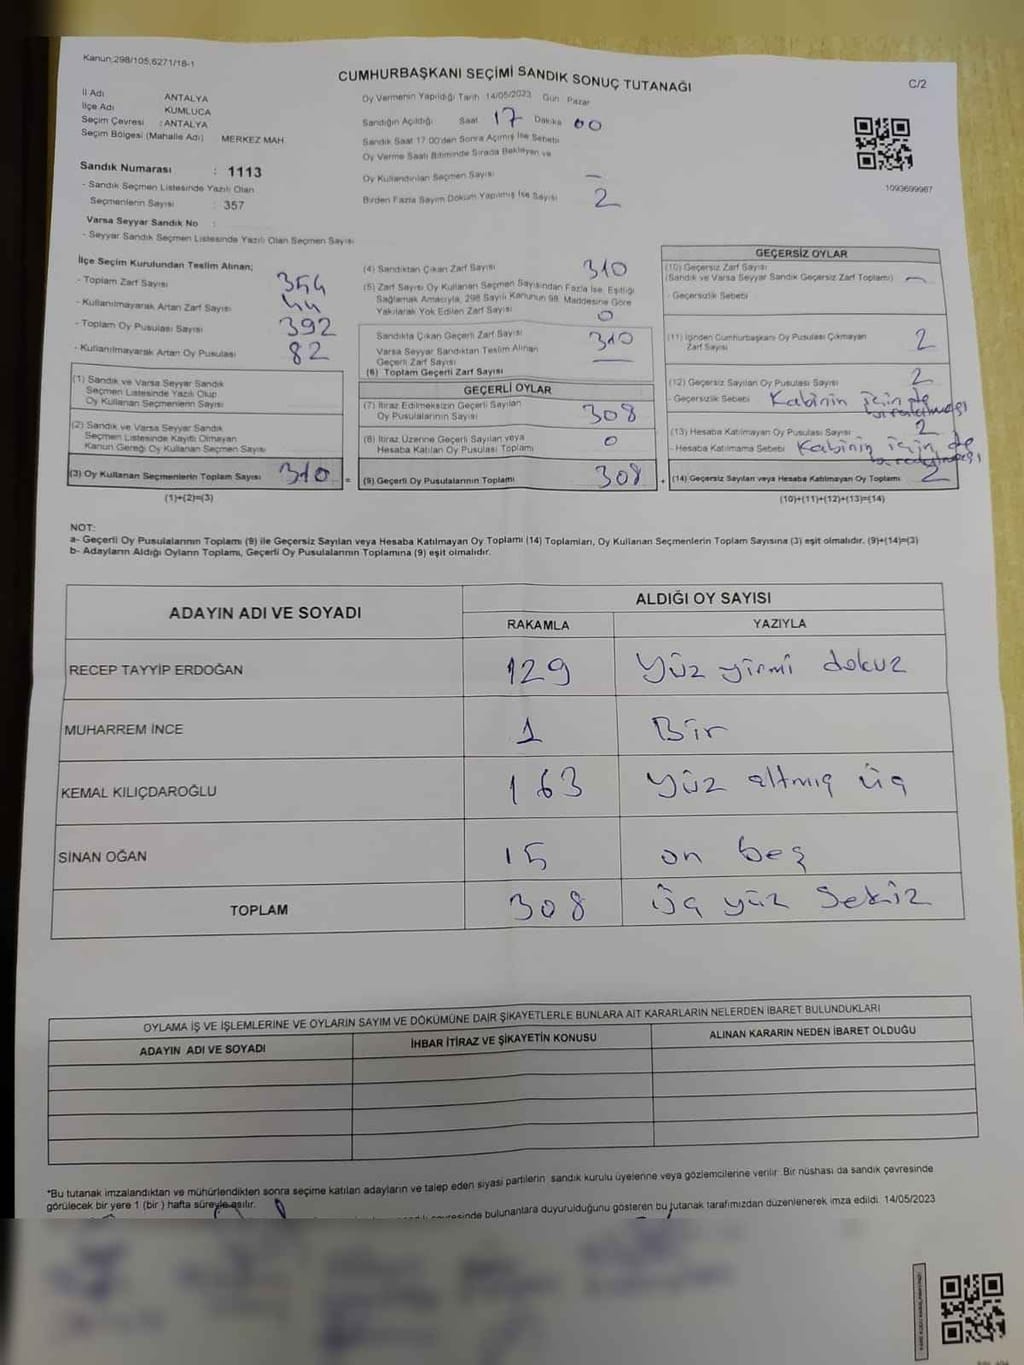 Kanun;298/105;6271/18-1
CUMHURBAŞKANI SEÇİMİ SANDIK SONUÇ TUTANAĞI
C/2
İl Adı ANTALYA
İlçe Adı KUMLUCA
Seçim Çevresi : ANTALYA
Seçim Bölgesi (Mahalle Adı) MERKEZ MAH
Sandık Numarası : 1113
- Sandık Seçmen Listesinde Yazılı Olan
Seçmenlerin Sayısı : 357
Varsa Seyyar Sandık No :
- Seyyar Sandık Seçmen Listesinde Yazılı Olan Seçmen Sayısı
Oy Vermenin Yapıldığı Tarih 14/05/2023 Gün Pazar
Sandığın Açıldığı Saat 17 Dakika 00
Sandık Saat 17.00'den Sonra Açımış İse Sebebi
Oy Verme Saati Bitiminde Sırada Bekleyen ve
Oy Kullandırılan Seçmen Sayısı —
Birden Fazla Sayım Döküm Yapılmış İse Sayısı 2
1093699987
İlçe Seçim Kurulundan Teslim Alınan;
- Toplam Zarf Sayısı 354
- Kullanılmayarak Artan Zarf Sayısı 44
- Toplam Oy Pusulası Sayısı 392
- Kullanılmayarak Artan Oy Pusulası 82
(1) Sandık ve Varsa Seyyar Sandık
Seçmen Listesinde Yazılı Olup
Oy Kullanan Seçmenlerin Sayısı
(2) Sandık ve Varsa Seyyar Sandık
Seçmen Listesinde Kayıtlı Olmayan
Kanun Gereği Oy Kullanan Seçmen Sayısı
(3) Oy Kullanan Seçmenlerin Toplam Sayısı 310 =
(1)+(2)=(3)
(4) Sandıktan Çıkan Zarf Sayısı 310
(5) Zarf Sayısı Oy Kullanan Seçmen Sayısından Fazla İse, Eşitliği
Sağlamak Amacıyla, 298 Sayılı Kanunun 98. Maddesine Göre
Yakılarak Yok Edilen Zarf Sayısı 0
Sandıkta Çıkan Geçerli Zarf Sayısı 310
Varsa Seyyar Sandıktan Teslim Alınan
Geçerli Zarf Sayısı —
(6) Toplam Geçerli Zarf Sayısı
GEÇERLİ OYLAR
(7) İtiraz Edilmeksizin Geçerli Sayılan
Oy Pusulalarının Sayısı 308
(8) İtiraz Üzerine Geçerli Sayılan veya
Hesaba Katılan Oy Pusulası Toplamı 0
(9) Geçerli Oy Pusulalarının Toplamı 308 +
GEÇERSİZ OYLAR
(10) Geçersiz Zarf Sayısı
(Sandık ve Varsa Seyyar Sandık Geçersiz Zarf Toplamı) —
- Geçersizlik Sebebi
(11) İçinden Cumhurbaşkanı Oy Pusulası Çıkmayan
Zarf Sayısı 2
(12) Geçersiz Sayılan Oy Pusulası Sayısı 2
- Geçersizlik Sebebi Kabinin için de
(13) Hesaba Katılmayan Oy Pusulası Sayısı 2
- Hesaba Katılmama Sebebi Kabinin için de
(14) Geçersiz Sayılan veya Hesaba Katılmayan Oy Toplamı 2
(10)+(11)+(12)+(13)=(14)
NOT:
a- Geçerli Oy Pusulalarının Toplamı (9) ile Geçersiz Sayılan veya Hesaba Katılmayan Oy Toplamı (14) Toplamları, Oy Kullanan Seçmenlerin Toplam Sayısına (3) eşit olmalıdır. (9)+(14)=(3)
b- Adayların Aldığı Oyların Toplamı, Geçerli Oy Pusulalarının Toplamına (9) eşit olmalıdır.
ADAYIN ADI VE SOYADI ALDIĞI OY SAYISI
RAKAMLA YAZIYLA
RECEP TAYYİP ERDOĞAN 129 Yüz yirmi dokuz
MUHARREM İNCE 1 Bir
KEMAL KILIÇDAROĞLU 163 Yüz altmış üç
SİNAN OĞAN 15 on beş
TOPLAM 308 Üç yüz Sekiz
OYLAMA İŞ VE İŞLEMLERİNE VE OYLARIN SAYIM VE DÖKÜMÜNE DAİR ŞİKAYETLERLE BUNLARA AİT KARARLARIN NELERDEN İBARET BULUNDUKLARI
ADAYIN ADI VE SOYADI İHBAR İTİRAZ VE ŞİKAYETİN KONUSU ALINAN KARARIN NEDEN İBARET OLDUĞU
*Bu tutanak imzalandıktan ve mühürlendikten sonra seçime katılan adayların ve talep eden siyasi partilerin sandık kurulu üyelerine veya gözlemcilerine verilir. Bir nüshası da sandık çevresinde
görülecek bir yere 1 (bir) hafta süreyle asılır.
çevresinde bulunanlara duyurulduğunu gösteren bu tutanak tarafımızdan düzenlenerek imza edildi. 14/05/2023